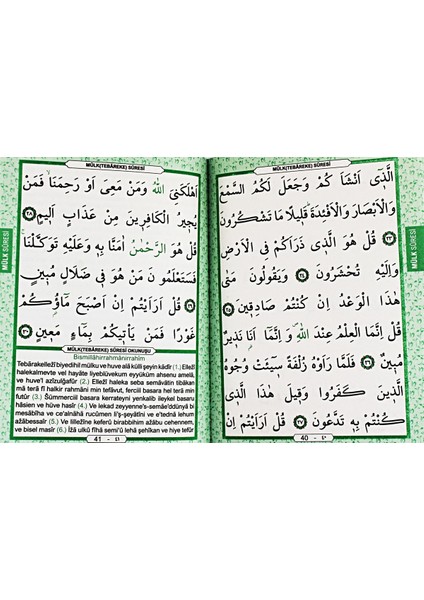 MÜLK(TEBÂREKE) SÛRESİ
اَلَّذٖٓي اَنْشَاَ كُمْ وَجَعَلَ لَكُمُ السَّمْعَ
وَالْاَبْصَارَ وَالْاَفْـِٔدَةَ قَلٖيلًا مَا تَشْكُرُونَ
﴿٢٣﴾ قُلْ هُوَ الَّذٖي ذَرَاَكُمْ فِي الْاَرْضِ
وَاِلَيْهِ تُحْشَرُونَ ﴿٢٤﴾ وَيَقُولُونَ مَتٰى
هٰذَا الْوَعْدُ اِنْ كُنْتُمْ صَادِقٖينَ ﴿٢٥﴾
قُلْ اِنَّمَا الْعِلْمُ عِنْدَ اللّٰهِ وَ اِنَّمَٓا اَنَا۬ نَذٖيرٌ
مُبٖينٌ ﴿٢٦﴾ فَلَمَّا رَاَوْهُ زُلْفَةً سٖٓيـَٔتْ وُجُوهُ
الَّذٖينَ كَفَرُوا وَقٖيلَ هٰذَا الَّذٖي
كُنْتُمْ بِهٖ تَدَّعُونَ ﴿٢٧﴾ قُلْ اَرَاَيْتُمْ اِنْ
40 - ٤٠
MÜLK SÛRESİ
MÜLK(TEBÂREKE) SÛRESİ
اَهْلَكَنِيَ اللّٰهُ وَمَنْ مَعِيَ اَوْ رَحِمَنَاۙ فَمَنْ
يُجٖيرُ الْكَافِرٖينَ مِنْ عَذَابٍ اَلٖيمٍ ﴿٢٨﴾
قُلْ هُوَ الرَّحْمٰنُ اٰمَنَّا بِهٖ وَعَلَيْهِ تَوَكَّلْنَا
فَسَتَعْلَمُونَ مَنْ هُوَ فٖي ضَلَالٍ مُبٖينٍ
﴿٢٩﴾ قُلْ اَرَاَيْتُمْ اِنْ اَصْبَحَ مَٓاؤُ۬كُمْ
غَوْرًا فَمَنْ يَأْتٖيكُمْ بِمَٓاءٍ مَعٖينٍ ﴿٣٠﴾
MÜLK(TEBÂREKE) SÛRESİ OKUNUŞU
Bismillâhirrahmânirrahîm
Tebârakellezî biyedihil mülku ve huve alâ külli şeyin kadîr (1.) Ellezî
halekalmevte vel hayâte liyeblüvekum eyyüküm ahsenu amelâ,
ve huve'l azîzulğafûr (2.) Ellezî haleka seba semâvâtin tibâkan
mâ terâ fî halkir rahmâni min tefâvut, ferciil basara hel terâ min
futûr (3.) Sümmerciil basara kerrateyni yenkalib ileykel basaru
hâsien ve hüve hâsir (4.) Ve lekad zeyyenne's-semâe'ddünyâ bi
mesâbîha ve ce'alnâhâ rucûmen li'ş-şeyâtîni ve e'tednâ lehum
azâbessaîr (5.) Ve lillezîne keferû birabbihim azâbu cehennem,
ve bisel masîr (6.) İzâ ulkû fîhâ semi'û lehâ şehîkan ve hiye tefûr
41 - ٤١
MÜLK SÛRESİ